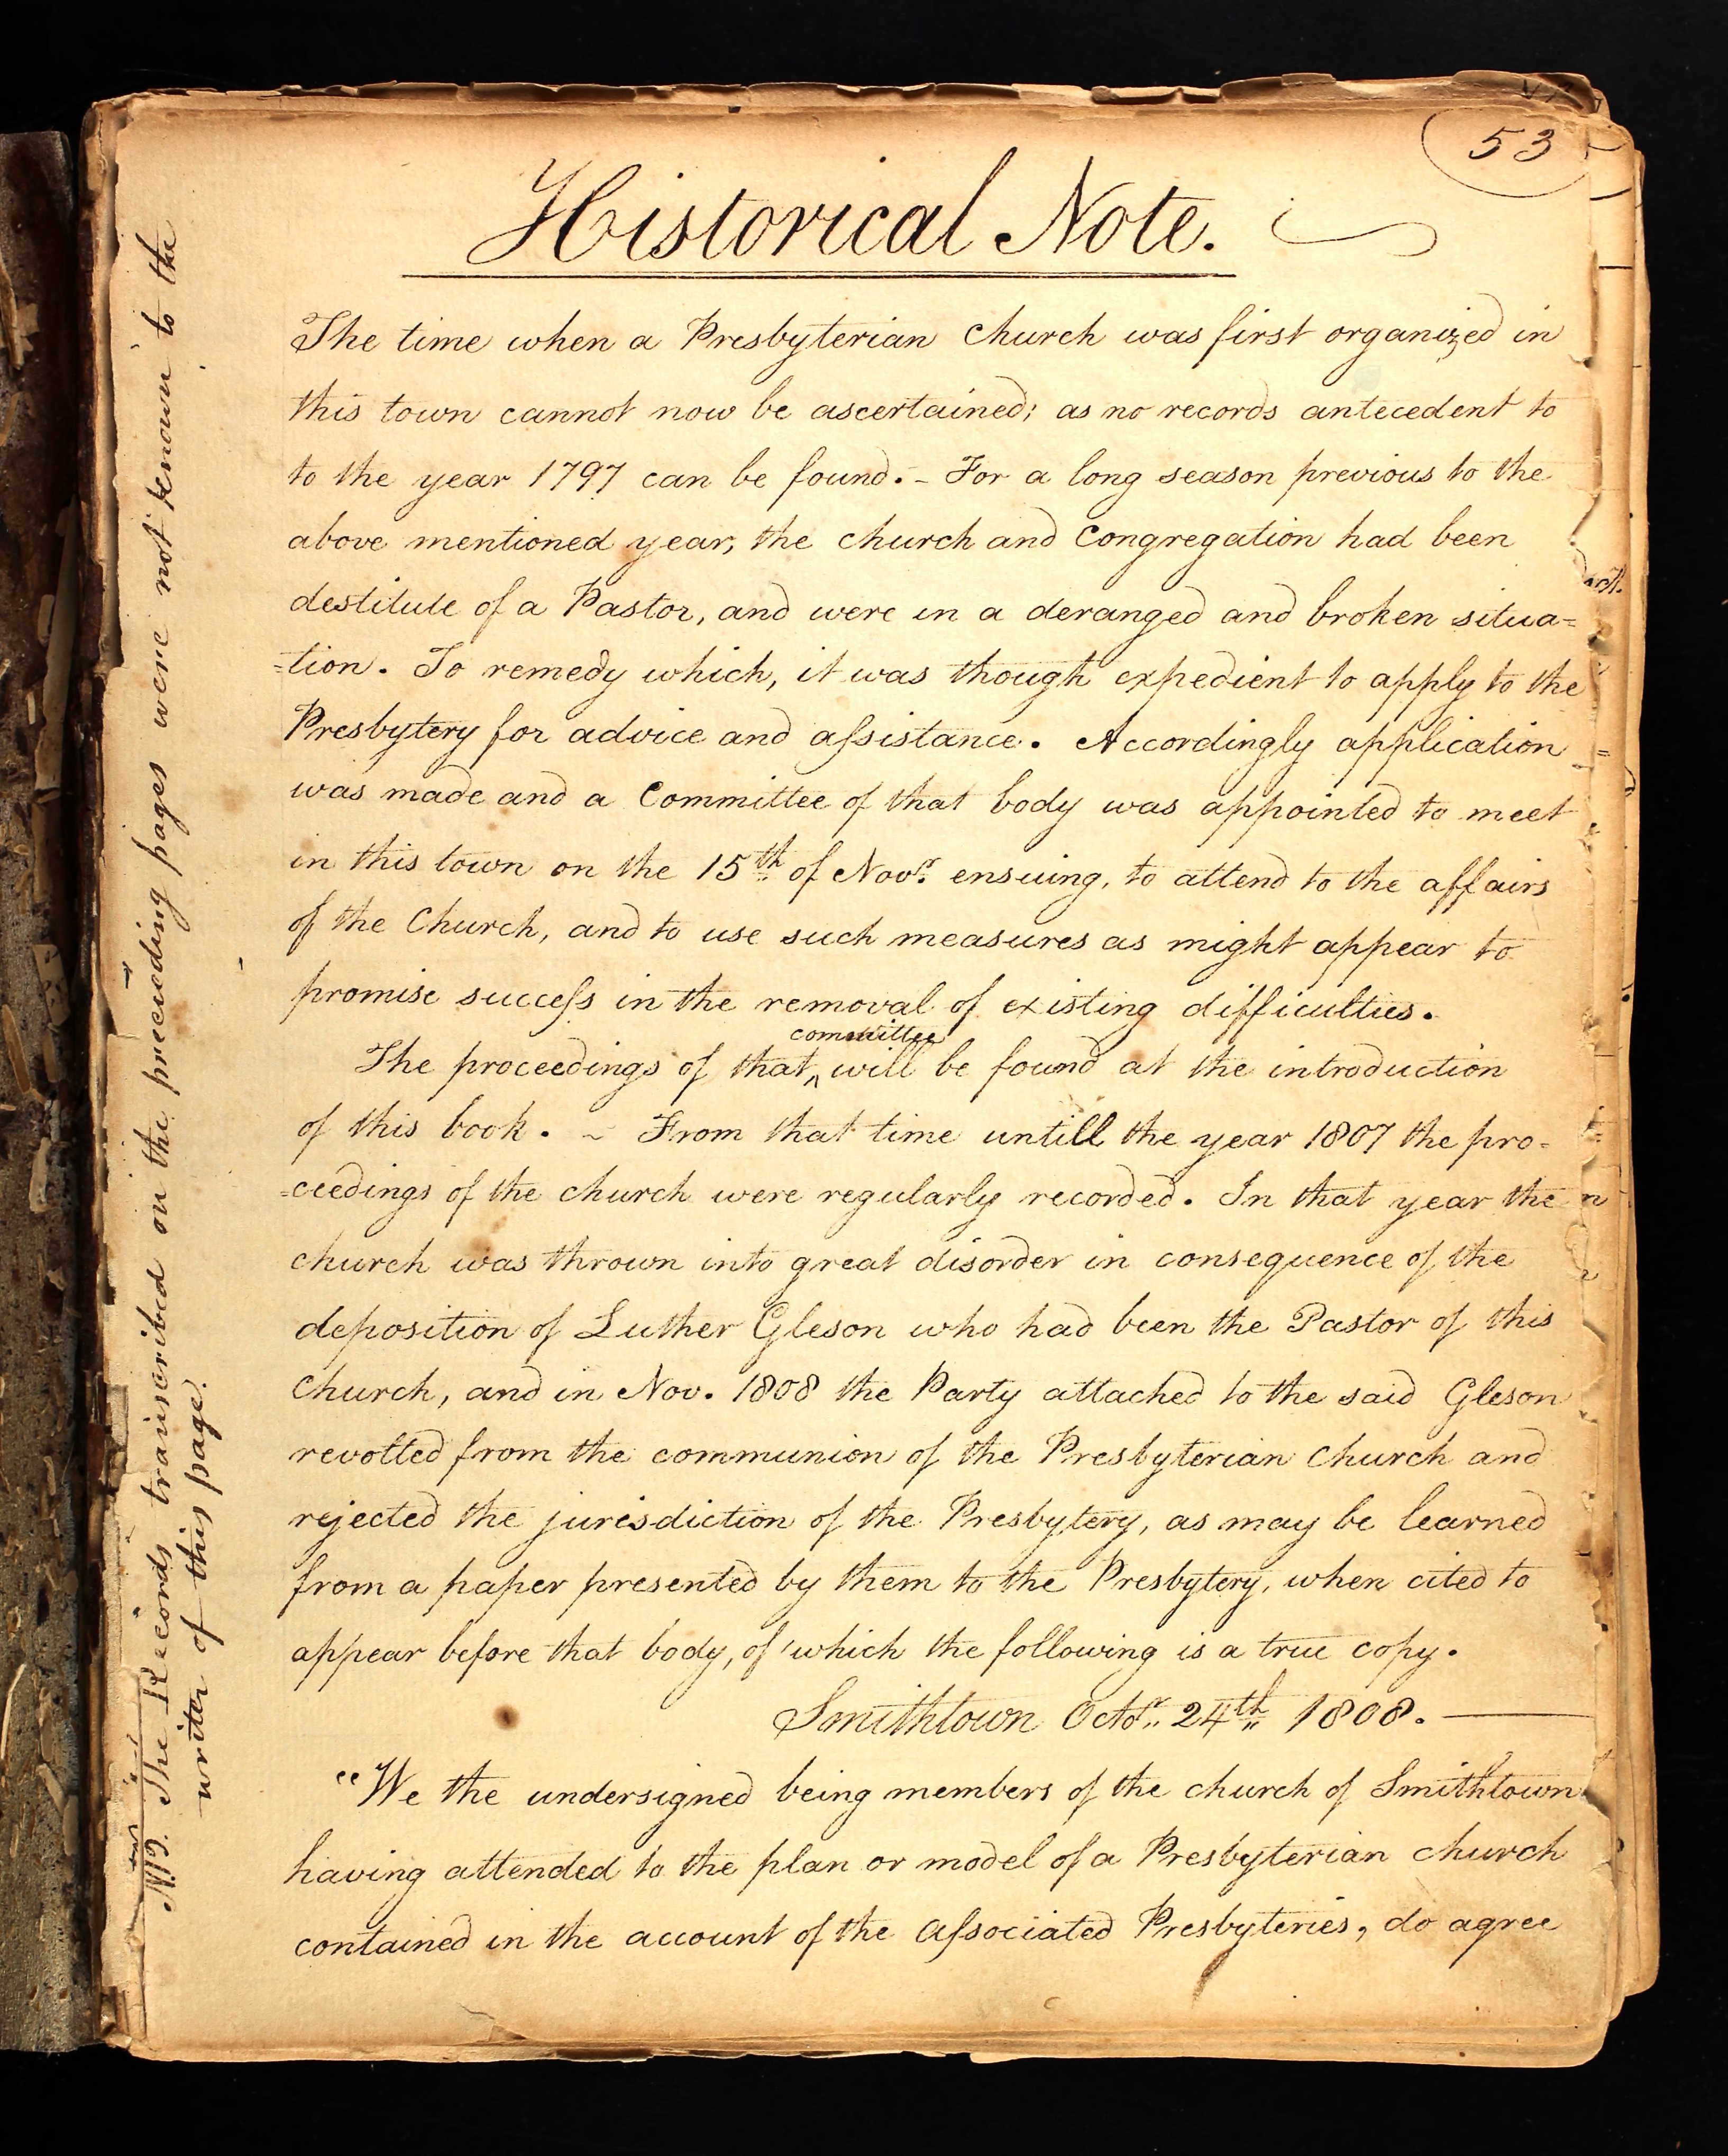 53
Historical Note.
The time when a Presbyterian church was first organized in
this town cannot now be ascertained; as no records antecedent to
to the year 1797 can be found. - For a long season previous to the
above mentioned year, the church and congregation had been
destitute of a Pastor, and were in a deranged and broken situa=
=tion. To remedy which, it was though expedient to apply to the
Presbytery for advice and aſsistance. Accordingly application
was made and a Committee of that body was appointed to meet
in this town on the 15th of Novr. ensuing, to attend to the affairs
of the Church, and to use such measures as might appear to
promise succeſs in the removal of existing difficulties.
committee
The proceedings of that ^ will be found at the introduction
of this book. ~ From that time untill the year 1807 the pro=
=ceedings of the church were regularly recorded. In that year the
church was thrown into great disorder in consequence of the
deposition of Luther Gleson who had been the Pastor of this
church, and in Nov. 1808 the Party attached to the said Gleson
revolted from the communion of the Presbyterian church and
rejected the jurisdiction of the Presbytery, as may be learned
from a paper presented by them to the Presbytery, when cited to
appear before that body, of which the following is a true copy.
Smithtown Octor. 24th 1808.
"We the undersigned being members of the church of Smithtown
having attended to the plan or model of a Presbyterian church
contained in the account of the aſsociated Presbyteries, do agree
N.B. The Records transcribed on the preceeding pages were not known to the
writer of this page.